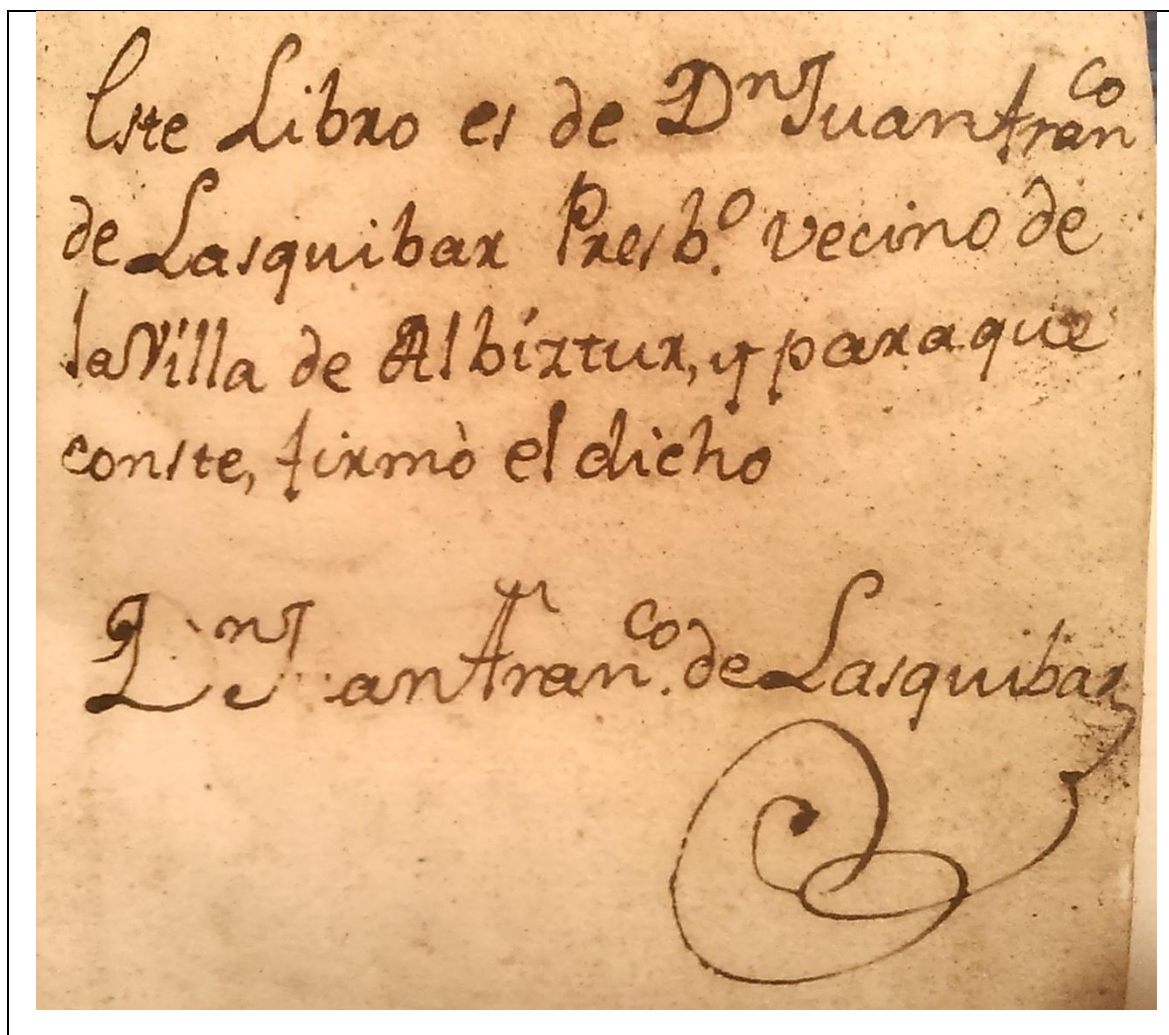 Este Libro es de Dn Juan Franco
de Lasquibar Presb.o vecino de
la Villa de Albiztur, y para que
conste, firmò el dicho
Dn Juan Franco. de Lasquibar